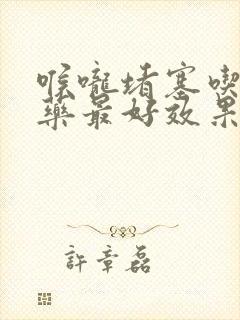 喉嚨堵塞喫
藥最好效果
許章磊